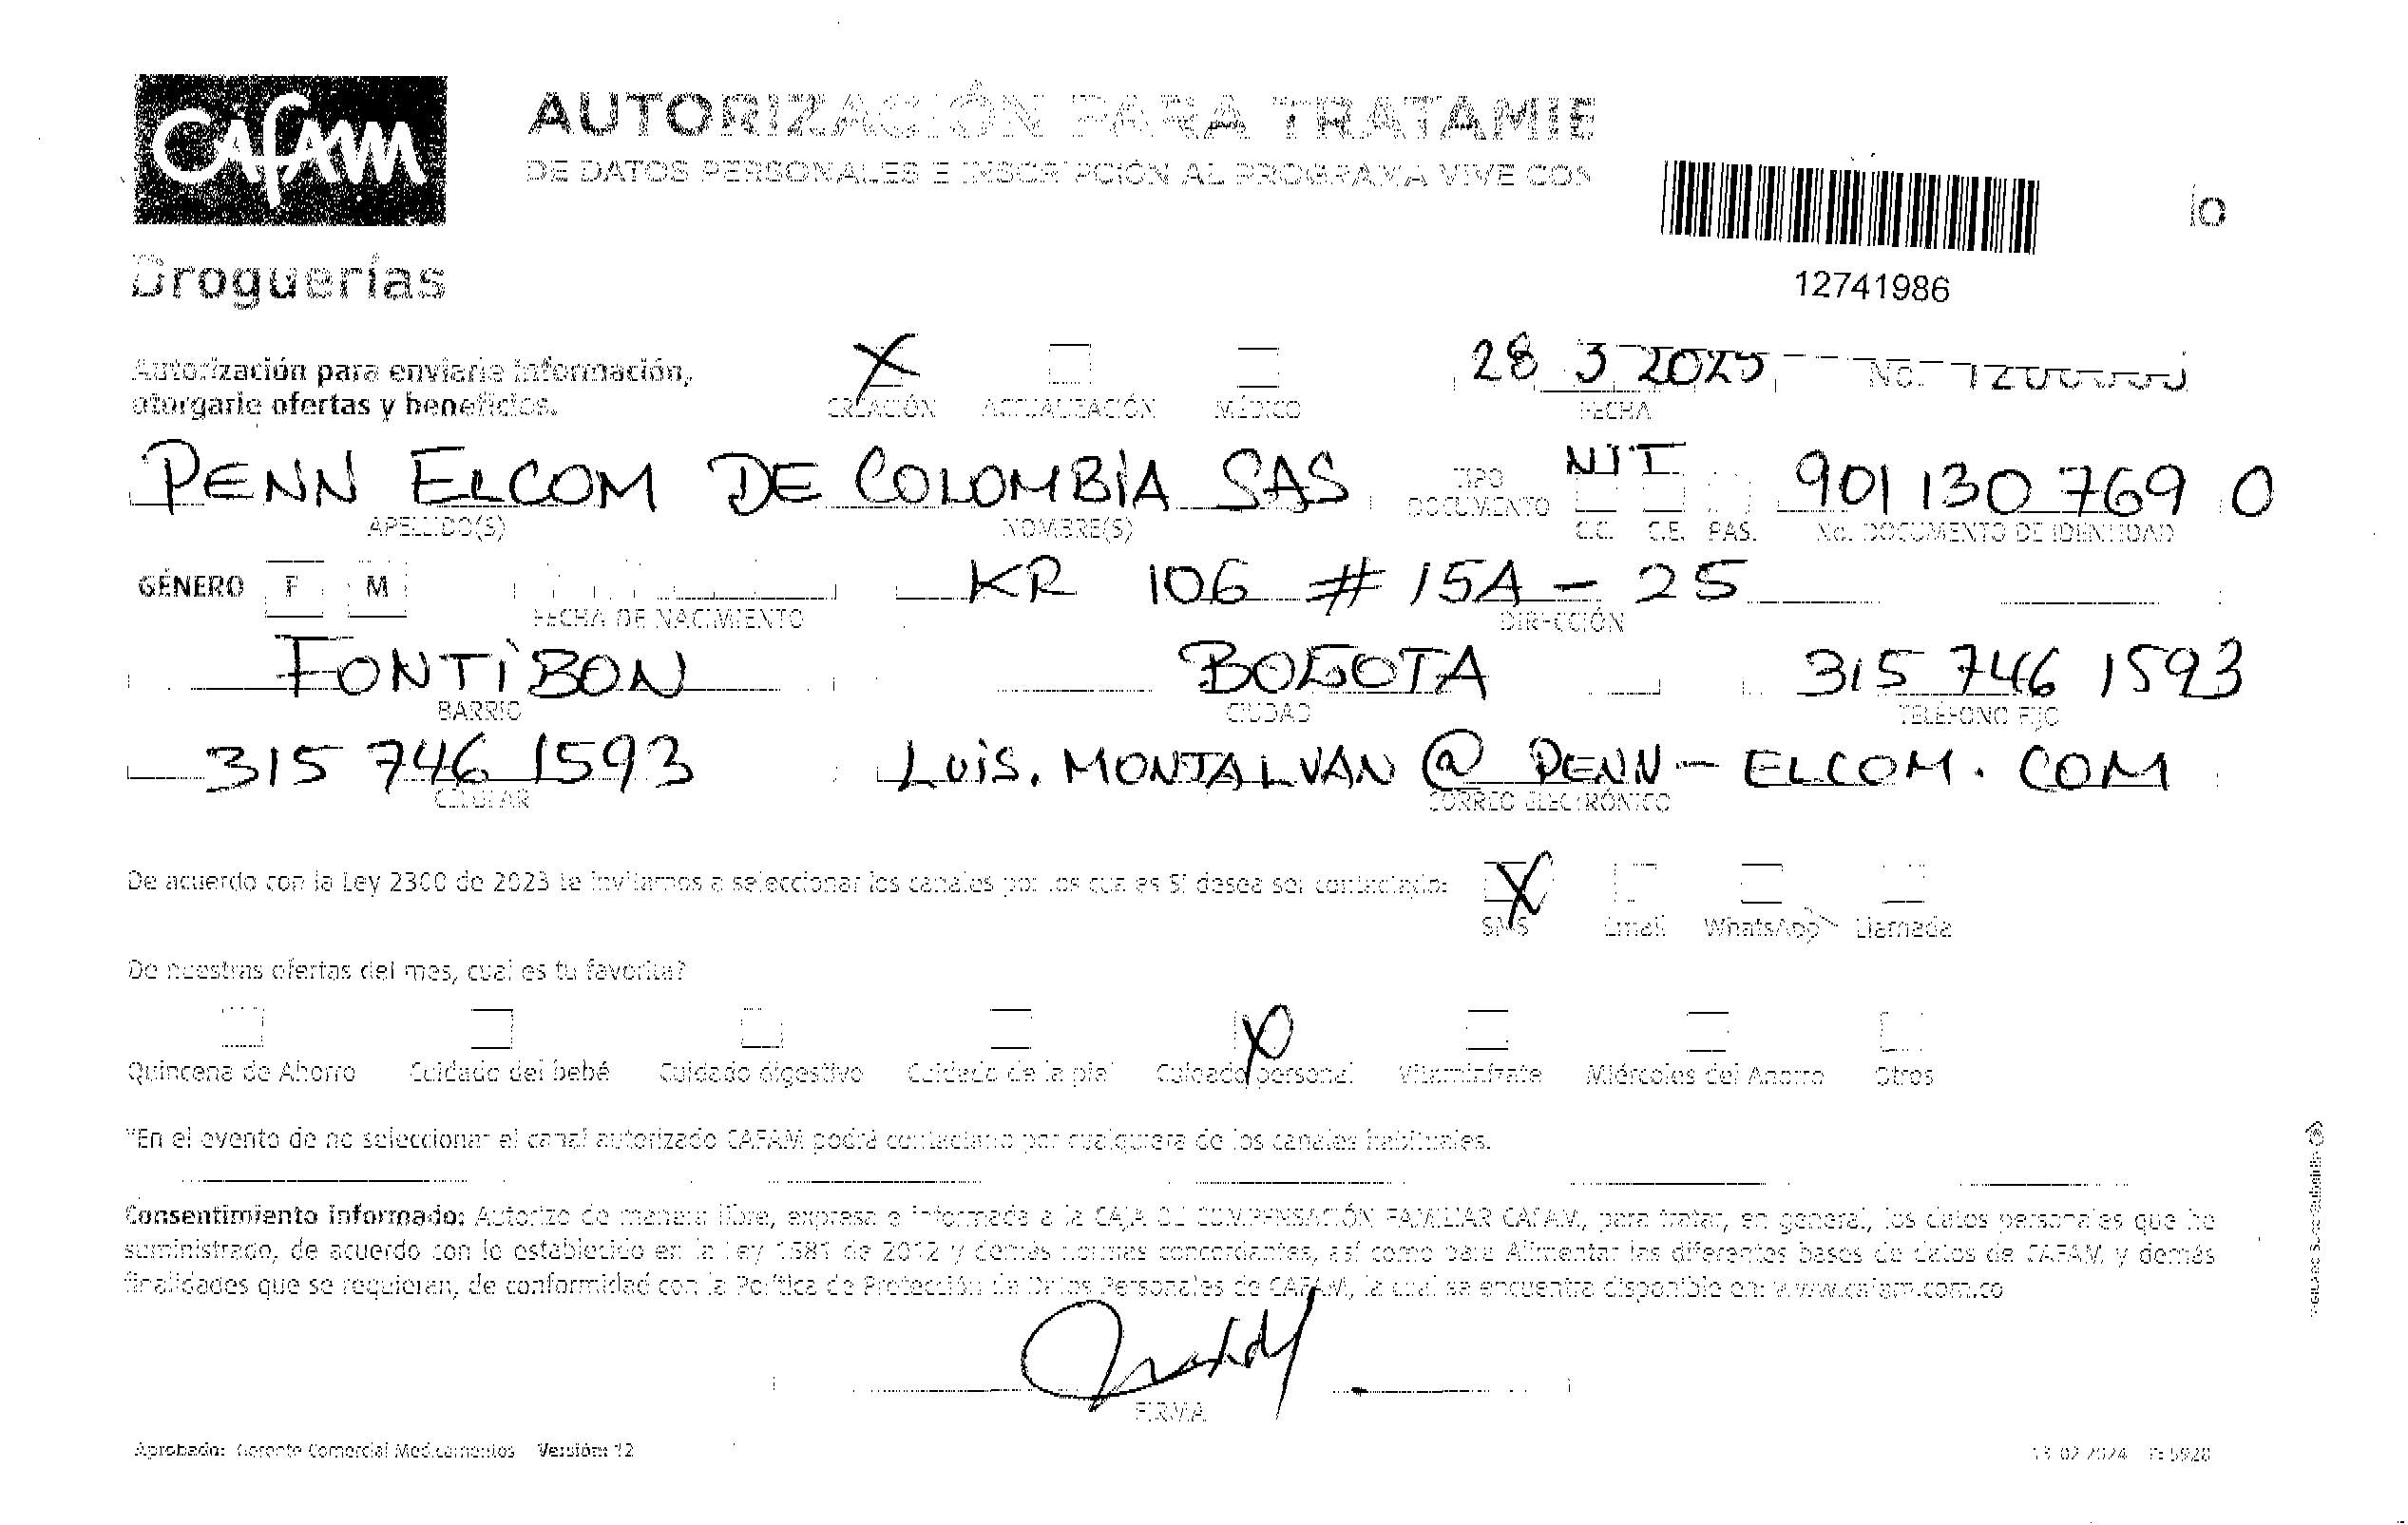 Cafam
Droguerías
AUTORIZACIÓN PARA TRATAMIE
DE DATOS PERSONALES E INSCRIPCIÓN AL PROGRAMA VIVE CON
io
12741986
Autorización para enviarle información,
otorgarle ofertas y beneficios.
CREACIÓN ACTUALIZACIÓN MÉDICO
28 3 2025
FECHA
No.
PENN ELCOM DE COLOMBIA SAS
APELLIDO(S) NOMBRE(S)
TIPO DOCUMENTO
NIT
C.C. C.E. PAS.
901 130 769 0
No. DOCUMENTO DE IDENTIDAD
GÉNERO F M
FECHA DE NACIMIENTO
KR 106 # 15A - 25
DIRECCIÓN
FONTIBON BOGOTA 315 746 1593
BARRIO CIUDAD TELÉFONO FIJO
315 746 1593 LUIS.MONTALVAN@PENN-ELCOM.COM
CELULAR CORREO ELECTRÓNICO
De acuerdo con la Ley 2300 de 2023 te invitamos a seleccionar los canales por los cuales Si desea ser contactado:
SMS Email WhatsApp Llamada
De nuestras ofertas del mes, cual es tu favorita?
Quincena de Ahorro Cuidado del bebé Cuidado digestivo Cuidado de la piel Cuidado personal Vitaminízate Miércoles del Ahorro Otros
*En el evento de no seleccionar el canal autorizado CAFAM podrá contactarlo por cualquiera de los canales habituales.
Consentimiento informado: Autorizo de manera libre, expresa e informada a la CAJA DE COMPENSACIÓN FAMILIAR CAFAM, para tratar, en general, los datos personales que he
suministrado, de acuerdo con lo establecido en la Ley 1581 de 2012 y demás normas concordantes, así como para Alimentar las diferentes bases de datos de CAFAM y demás
finalidades que se requieran, de conformidad con la Política de Protección de Datos Personales de CAFAM, la cual se encuentra disponible en: www.cafam.com.co
FIRMA
Aprobado: Gerente Comercial Medicamentos Versión: 12
13 02 2024
VIGILADO